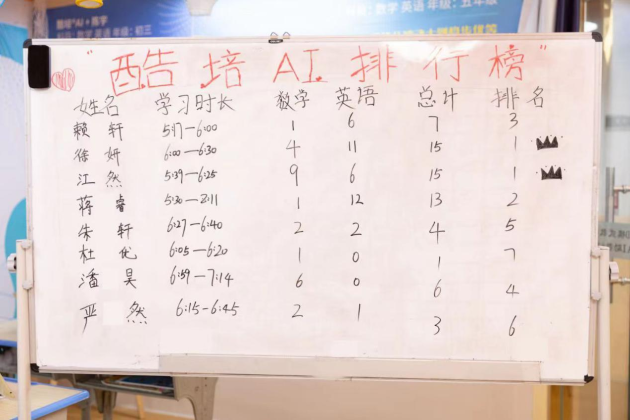 数学 英语 年级：初三
数学 英语 年级：五年级
"酷培AI排行榜"
姓名 学习时长 数学 英语 总计 排名
赖轩 5:17—6:00 1 6 7 3
徐妍 6:00—6:30 4 11 15 1
江然 5:39—6:25 9 6 15 1
蒋睿 5:30—8:11 1 12 13 2
朱轩 6:27—6:40 2 2 4 5
杜优 6:05—6:20 1 0 1 7
潘昊 6:59—7:14 6 0 6 4
严然 6:15—6:45 2 1 3 6